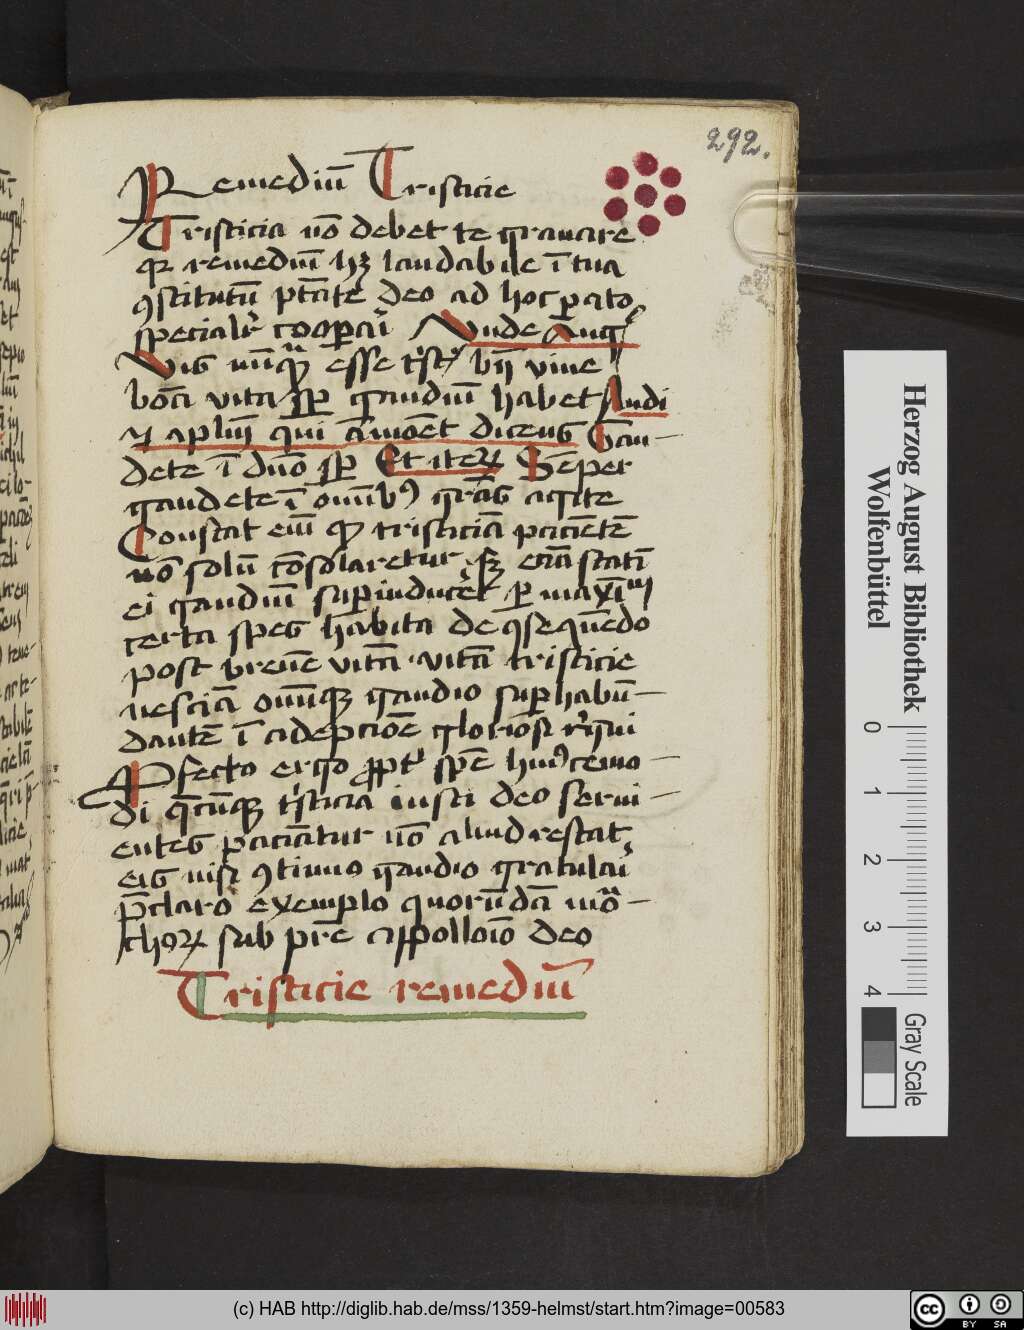 292.
Remediū Tristicie
Tristicia nō debet te grauare
qꝛ remediū hȝ laudabile ī tua
ꝯstitutū ptāte deo ad hoc parato
specialit' cooꝑāt Vnde Aug
Vis nūqȝ esse t'st' bn̄ viue
bōa vita sꝑ gaudiū habet Audi
⁊ aplm̄ qui āmoēt dicens Gau-
dete ī dn̄o sꝑ Et iteꝝ Sēper
gaudete ī oīnibꝰ grās agite
Constat eīn qȝ tristiciā paciētē
nō solū cōsolaretur sȝ eciā statī
ei gaudiū suꝑinduceret ꝑ maxīm
certa spes habita de ꝯsequēdo
post breuē vitā vitā tristicie
nesciā omīqȝ gaudio suꝑhabū-
dantē ī adepciōe gloriosi regni
Ꝓfecto ergo ꝓpt' spē huiꝰcemo-
di qācūqȝ t'sticia iusti deo serui-
entes paciātur nō aliud restat
eis nisi ꝯtinuo gaudio gratulari
p̄claro exemplo quorūdā mōa-
choꝝ sub pr̄e appolloīo deo
Tristicie remediū
Herzog August Bibliothek
Wolfenbüttel
0 1 2 3 4
Gray Scale
(c) HAB http://diglib.hab.de/mss/1359-helmst/start.htm?image=00583
cc BY SA